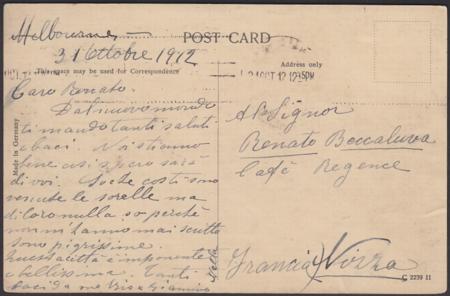 Melbourne
31 Ottobre 1912
POST CARD
This space may be used for Correspondence
Address only
12 1235PM
Caro Renato.
Dal nuovo mondo
ti mando tanti saluti
baci. Noi stiamo
bene così spero sarà
di voi. So che costì sono
venute le sorelle ma
di Coronulla so perché
non m'hanno mai scritto
sono pigrissime.
Questa città è imponente
e bellissima. Tanti
baci da me
Made in Germany
Al Signor
Renato Beccaluva
Café Regence
(Francia) Nizza
C 2239 11